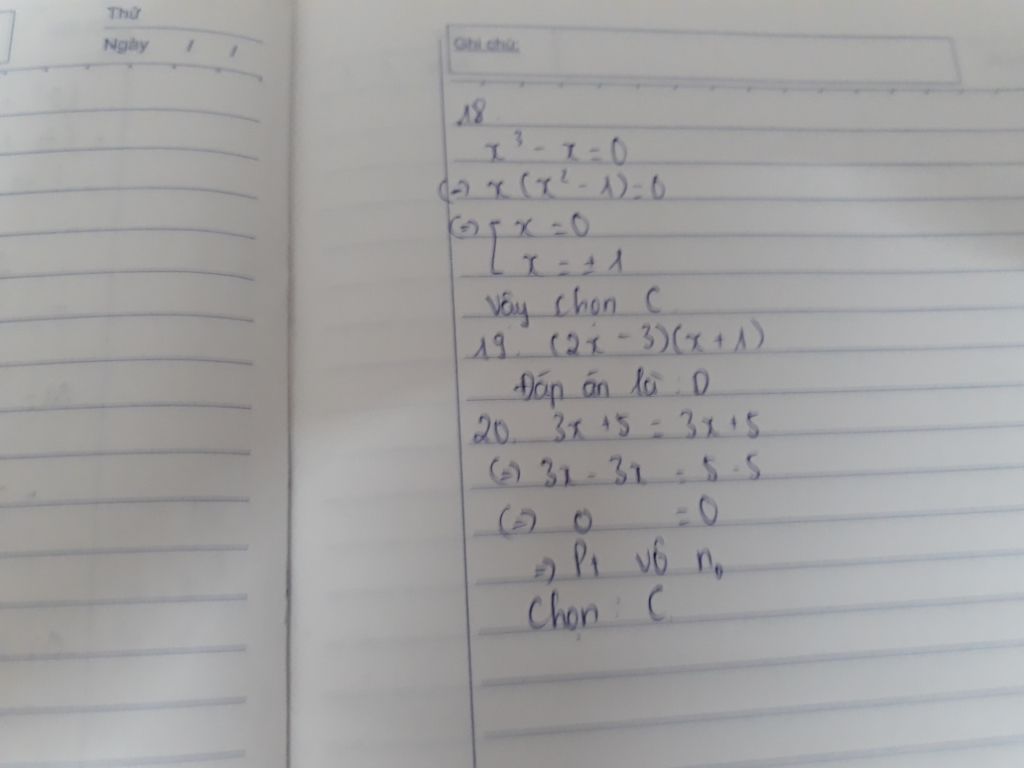 Thứ
Ngày / /
Ghi chú:
18
x³ - x = 0
(=) x (x² - 1) = 0
(=) [ x = 0
x = ± 1
Vậy chọn C
19. (2x - 3)(x + 1)
Đáp án là : D
20. 3x + 5 = 3x + 5
(=) 3x - 3x = 5 - 5
(=) 0 = 0
=> Pt vô n₀
Chọn : C